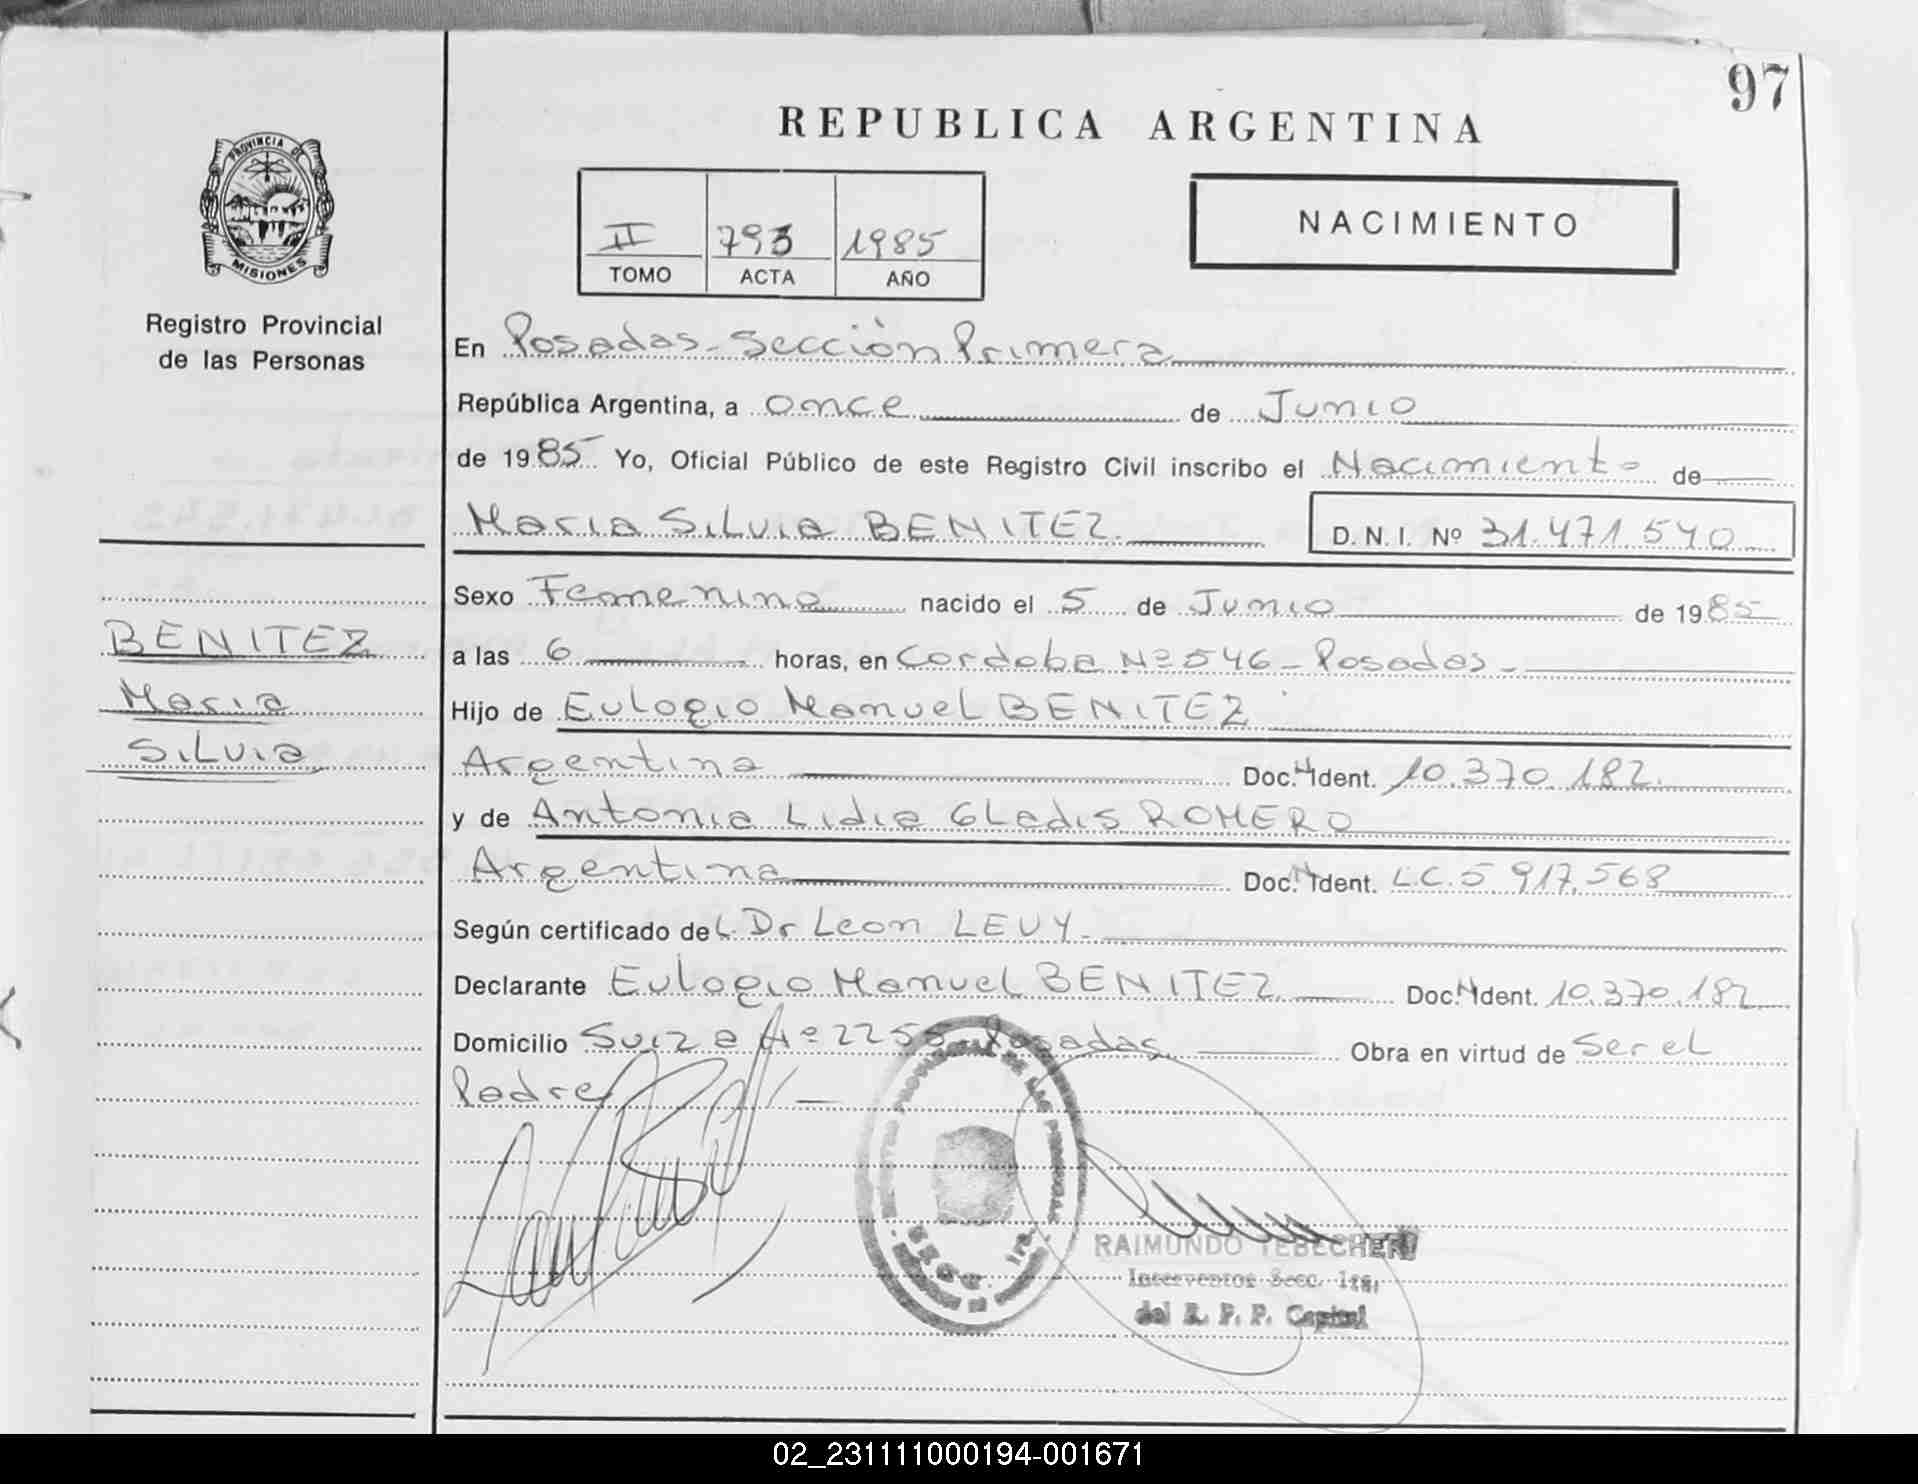 97
REPUBLICA ARGENTINA
PROVINCIA DE
MISIONES
Registro Provincial
de las Personas
II 793 1985
TOMO ACTA AÑO
NACIMIENTO
En Posadas - Sección Primera
República Argentina, a once de Junio
de 1985 Yo, Oficial Público de este Registro Civil inscribo el Nacimiento de
Maria Silvia BENITEZ D.N.I. Nº 31.471.540
Sexo Femenino nacido el 5 de Junio de 1985
BENITEZ
Maria
Silvia
a las 6 horas, en Cordoba Nº 546 - Posadas -
Hijo de Eulogio Manuel BENITEZ
Argentina Doc. Ident. 10.370.182.
y de Antonia Lidia Gladis ROMERO
Argentina Doc. Ident. L.C. 5.917.568
Según certificado del Dr Leon LEVY -
Declarante Eulogio Manuel BENITEZ Doc. Ident. 10.370.182
Domicilio Suiza Nº 2255 Posadas Obra en virtud de Ser el
Padre
RAIMUNDO TEBECHERI
Interventor Secc. 1ra.
del R. P. P. Capital
02_231111000194-001671